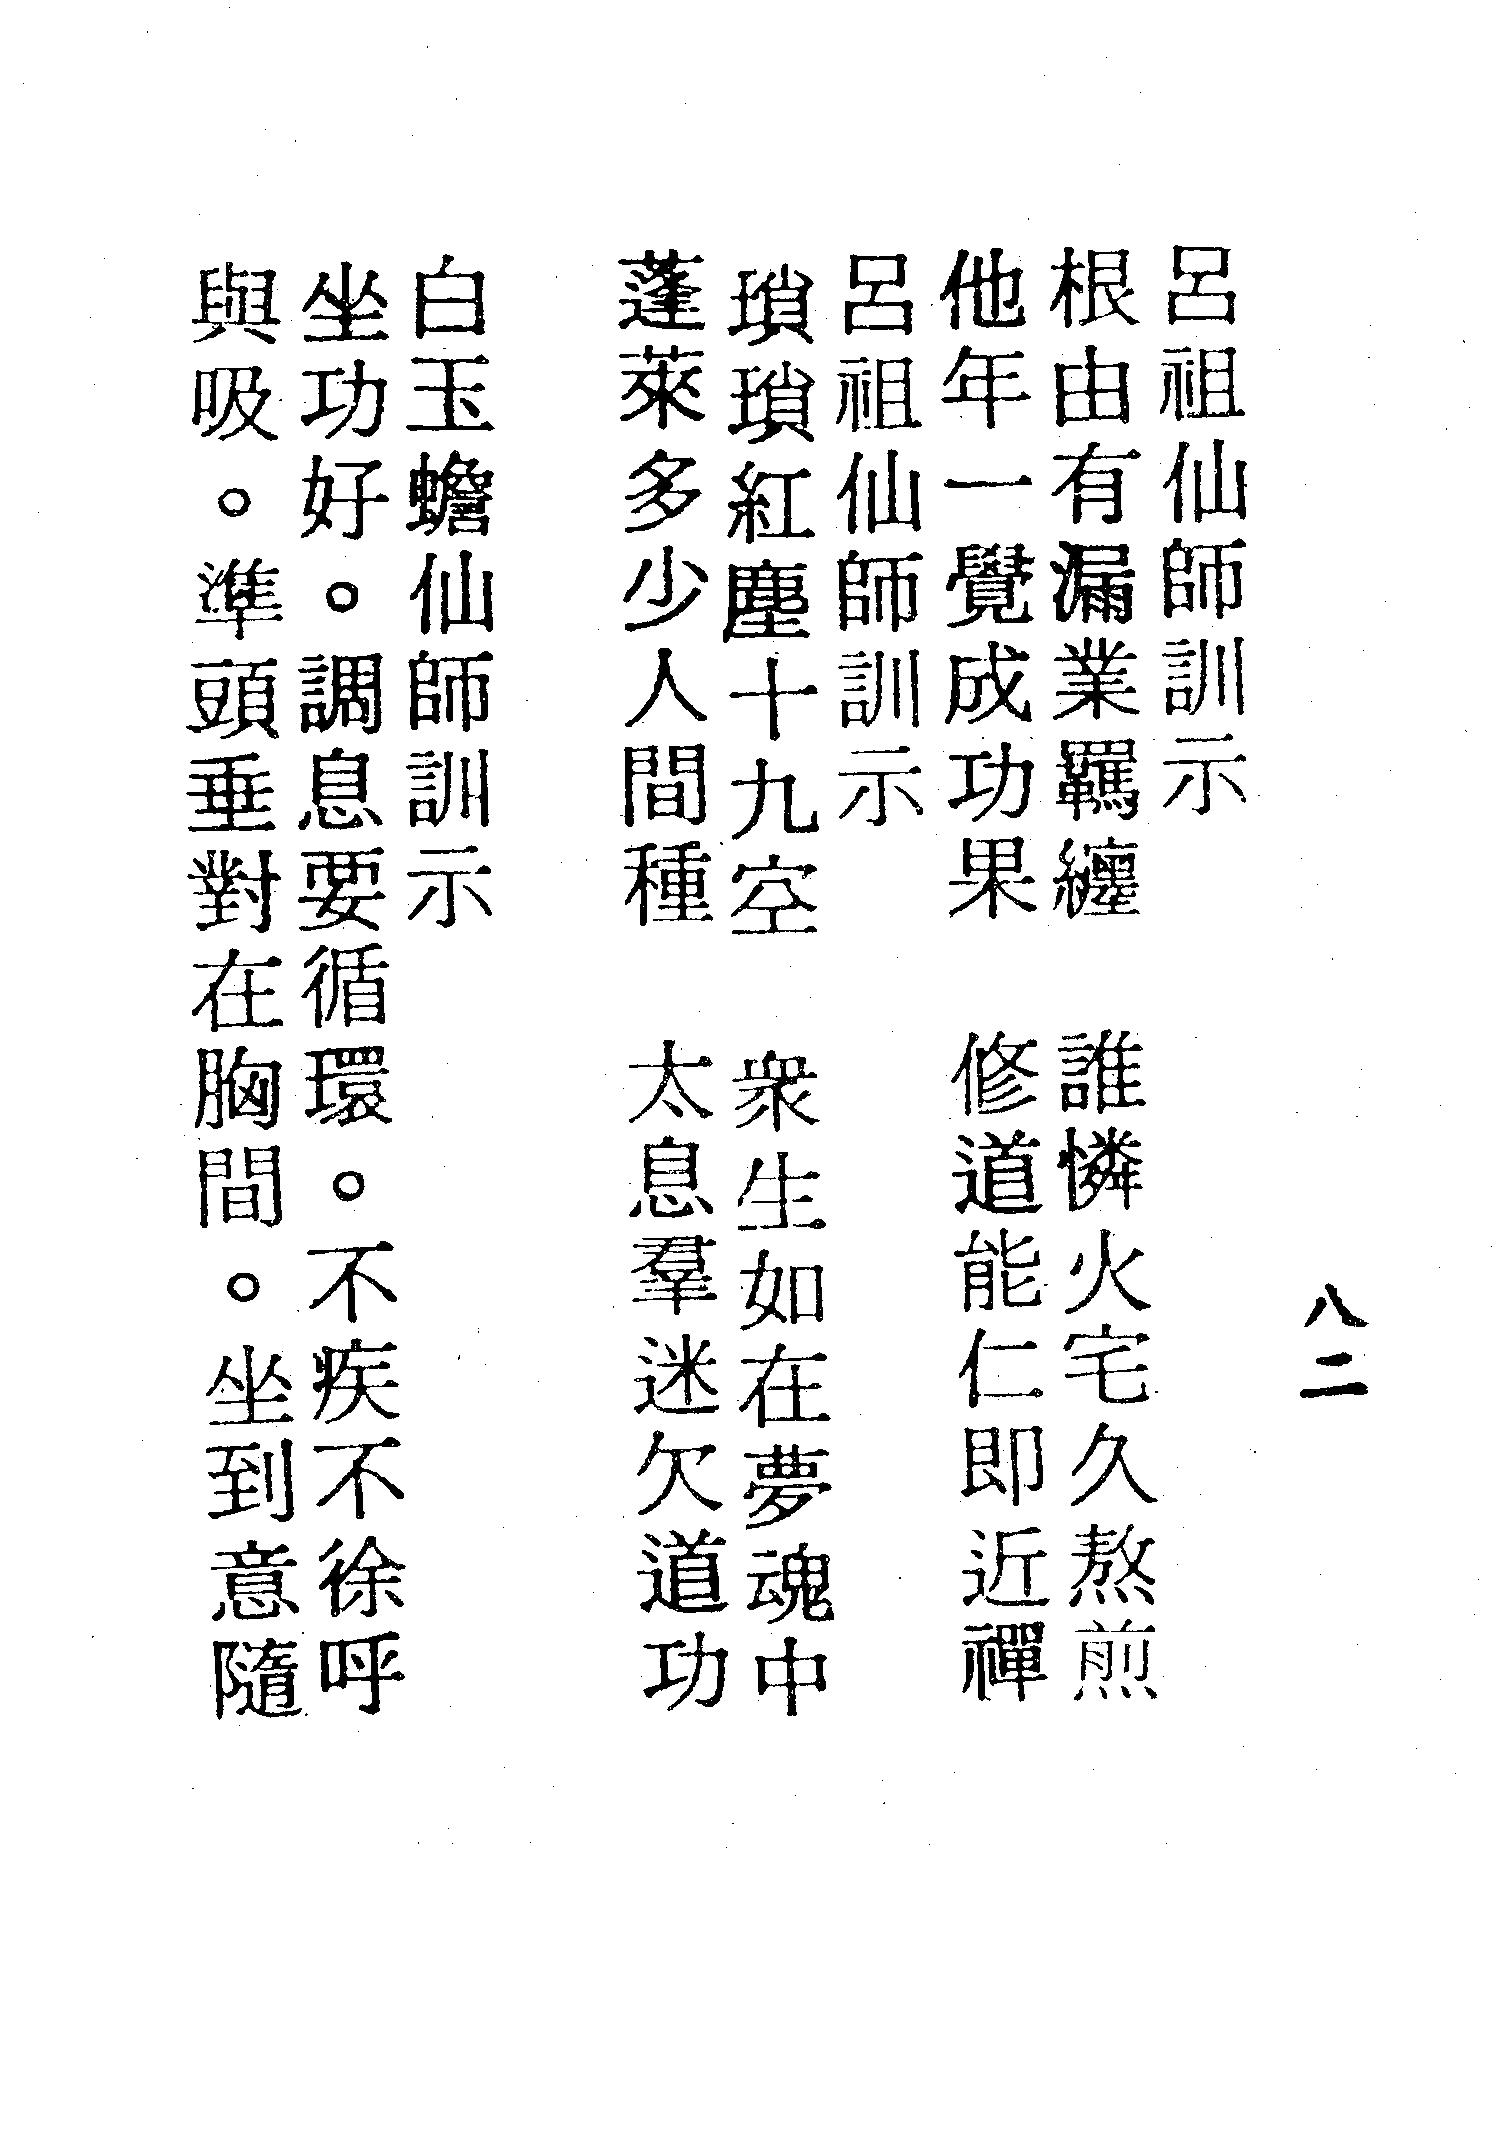 八二
呂祖仙師訓示
根由有漏業羈纏　誰憐火宅久熬煎
他年一覺成功果　修道能仁即近禪
呂祖仙師訓示
瑣瑣紅塵十九空　衆生如在夢魂中
蓬萊多少人間種　太息羣迷欠道功
白玉蟾仙師訓示
坐功好。調息要循環。不疾不徐呼
與吸。準頭垂對在胸間。坐到意隨